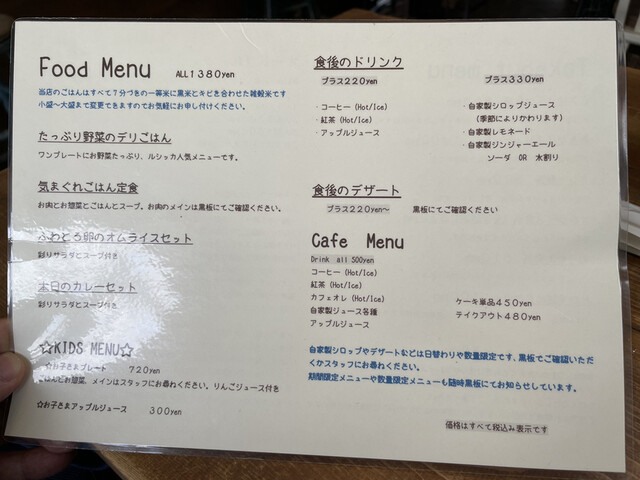 Food Menu ALL1380yen
当店のごはんはすべて7分づきの一等米に黒米とキビを合わせた雑穀米です
小盛～大盛まで変更できますのでお気軽にお申し付けください。
たっぷり野菜のデリごはん
ワンプレートにお野菜たっぷり、ルシッカ人気メニューです。
気まぐれごはん定食
お肉とお惣菜とごはんとスープ。お肉のメインは黒板にてご確認ください。
ふわとろ卵のオムライスセット
彩りサラダとスープ付き
本日のカレーセット
彩りサラダとスープ付き
☆KIDS MENU☆
☆お子さまプレート 720yen
ごはんとお惣菜、メインはスタッフにお尋ねください。りんごジュース付き
☆お子さまアップルジュース 300yen
食後のドリンク
プラス220yen プラス330yen
・コーヒー (Hot/Ice) ・自家製シロップジュース
・紅茶 (Hot/Ice) （季節によりかわります）
・アップルジュース ・自家製レモネード
・自家製ジンジャーエール
ソーダ OR 水割り
食後のデザート
プラス220yen～ 黒板にてご確認ください
Cafe Menu
Drink all 500yen
コーヒー (Hot/Ice)
紅茶 (Hot/Ice)
カフェオレ (Hot/Ice) ケーキ単品450yen
自家製ジュース各種 テイクアウト480yen
アップルジュース
自家製シロップやデザートなどは日替わりや数量限定です、黒板でご確認いただ
くかスタッフにお尋ねください。
期間限定メニューや数量限定メニューも随時黒板にてお知らせしています。
価格はすべて税込み表示です